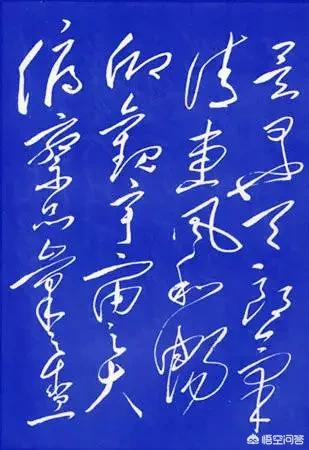 是日也天朗氣
清惠風和暢
仰觀宇宙之大
俯察品類之盛
悟空问答